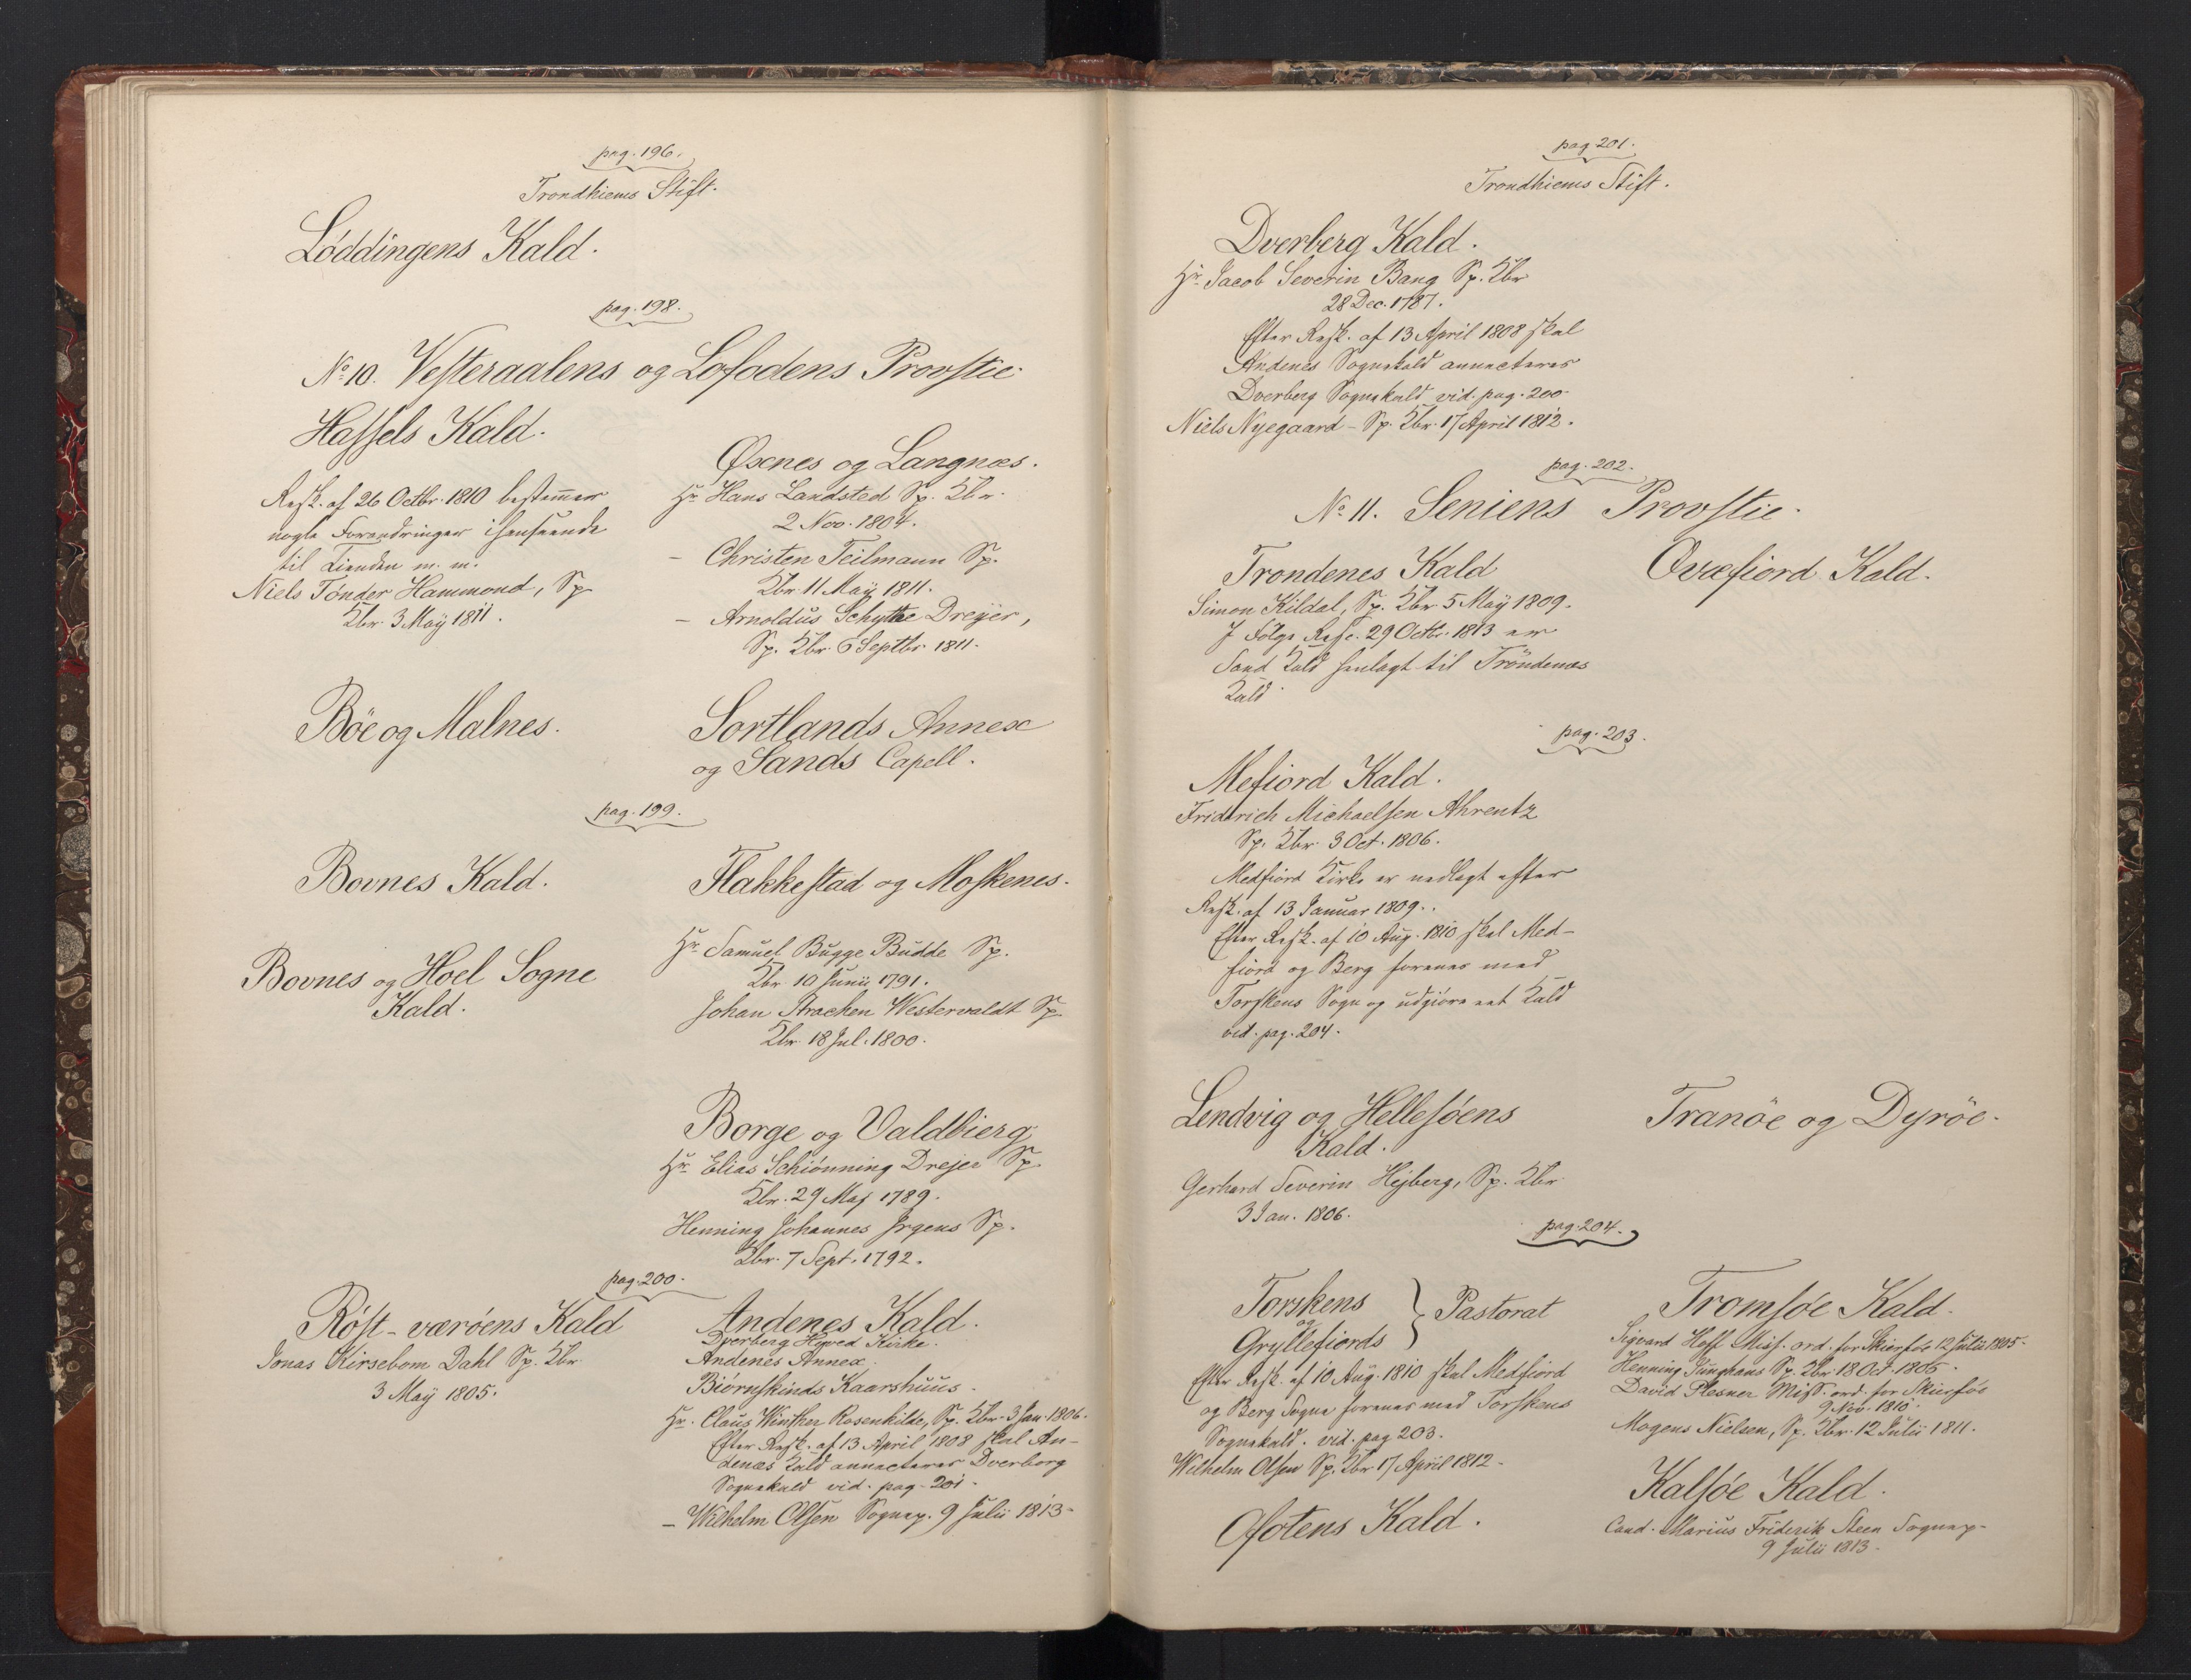 pag. 196.
Trondhiems Stift.
Löddingens Kald.
pag. 198.
No 10. Vesteraalens og Lofodens Provstie
Hassels Kald.
Resk. af 26 Octbr. 1810 bestemmer
nogle Forandringer ihenseende
til Tienden m. m.
Niels Tønder Hammond, Sp.
Kbr. 3 Maÿ 1811.
Øxnes og Langnæs.
Hr Hans Landsted Sp. Kbr.
2 Nov. 1804.
- Christen Teilmann Sp.
Kbr. 11 Maÿ 1811.
- Arnoldus Schytte Dreÿer,
Sp. Kbr. 6 Septbr. 1811.
Böe og Malnes.
Sortlands Annex
og Sands Capell.
pag. 199.
Bovnes Kald.
Flakkestad og Moskenes.
Bovnes og Hoel Sogne
Kald.
Hr Samuel Bugge Budde Sp.
Kbr. 10 Junii 1791.
Johan Strachen Westervaldt Sp.
Kbr. 18 Jul. 1800.
Borge og Valdbierg
Hr Elias Schiönning Drejer Sp.
Kbr. 29 Maj 1789.
Henning Johannes Irgens Sp.
Kbr. 7 Sept. 1792.
pag. 200.
Röst-væröens Kald
Jonas Kirsebom Dahl Sp. Kbr.
3 Maÿ 1805.
Andenes Kald.
Dverberg Hoved Kirke.
Andenes Annex.
Biörnskinds Kaarshuus.
Hr. Claus Winther Rosenkilde, Sp. Kbr. 3 Jan. 1806.
Efter Resk. af 13 April 1808 skal An-
denæs Kald annecteres Dverberg
Sognekald vid. pag. 201.
- Wilhelm Olsen Sognep. 9 Julii 1813.
pag 201.
Trondhiems Stift.
Dverberg Kald.
Hr. Jacob Severin Bang Sp. Kbr
28 Dec. 1787.
Efter Resk. af 13 April 1808 skal
Andenes Sognekald annecteres
Dverberg Sognekald vid. pag. 200
Niels Nyegaard - Sp. Kbr. 17 April 1812.
pag. 202.
No 11. Seniens Provstie.
Trondenes Kald
Simon Kildal, Sp. Kbr. 5 Maÿ 1809.
I Følge Resc. 29 Octbr. 1813 er
Sand Kald henlagt til Tröndenæs
Kald.
Ovæfiord Kald.
pag. 203.
Mefiord Kald.
Friderich Michaelsen Ahrentz
Sp. Kbr. 3 Oct. 1806.
Medfiord Kirke er nedlagt efter
Resk. af 13 Januar 1809.
Efter Resk. af 10 Aug. 1810 skal Med-
fiord og Berg forenes med
Torskens Sogn og udgiöre eet Kald
vid. pag. 204.
Lendvig og Hellesöens
Kald.
Gerhard Severin Hejberg, Sp. Kbr.
3 Jan. 1806.
Tranöe og Dyröe.
pag. 204.
Torskens
og
Gryllefiords
Pastorat
Efter Resk. af 10 Aug. 1810 skal Medfiord
og Berg Sogne forenes med Torskens
Sognekald. vid. pag 203.
Wilhelm Olsen Sp. Kbr. 17 April 1812.
Ofotens Kald.
Tromsöe Kald.
Sigvard Hoff Miss. ord. for Skierföe 12 Julii 1805.
Henning Junghans Sp. Kbr. 18 Oct 1805.
David Plesner Miss. ord. for Skierföe
9 Nov. 1810.
Mogens Nielsen, Sp. Kbr. 12 Julii 1811.
Kalsöe Kald.
Cand. Marius Friderik Steen Sognep.
9 Julii 1813.